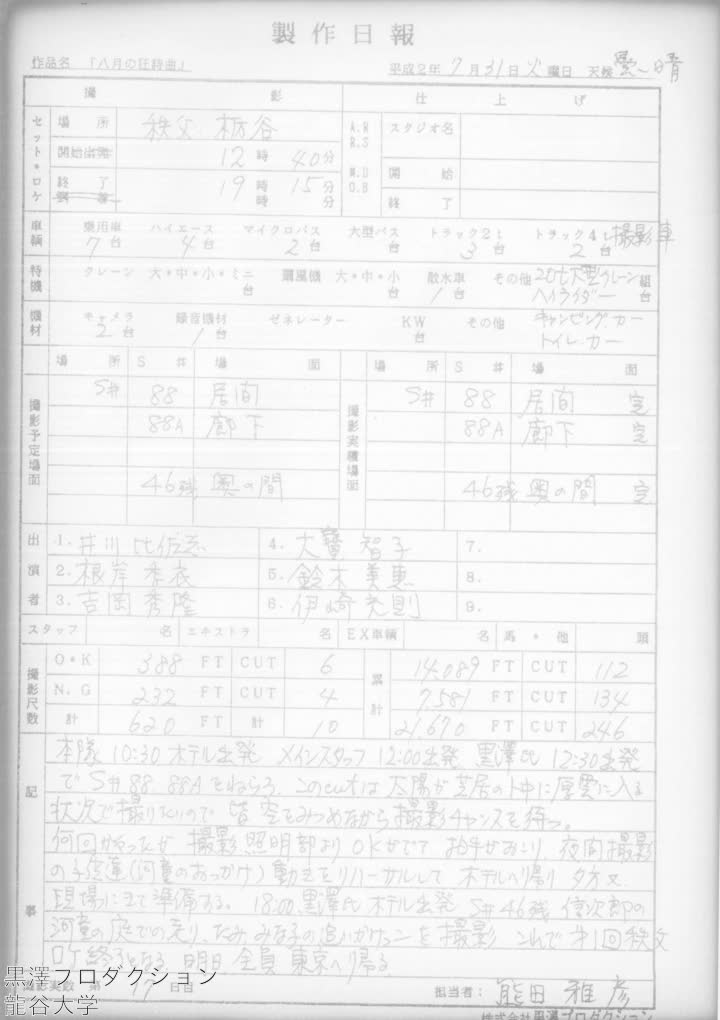 製作日報
作品名 「八月の狂詩曲」 平成2年 7月31日 火曜日 天候 曇〜晴
撮影 仕上げ
セット・ロケ 場所 秩父 栃谷 A.R R.S スタジオ名
開始 12時40分 M.U D.B 開始
終了 19時15分 終了
車輌 乗用車 7台 ハイエース 4台 マイクロバス 2台 大型バス 台 トラック2t 3台 トラック4t 2台 撮影車
特機 クレーン 大・中・小・ミニ 台 扇風機 大・中・小 台 散水車 1台 その他 20t大型クレーン ハイライダー 組台
機材 キャメラ 2台 録音機材 1台 ゼネレーター KW 台 その他 キャンピング・カー トイレ・カー
場所 S# 場面 場所 S# 場面
撮影予定場面 S# 88 居間 撮影実績場面 S# 88 居間 定
88A 廊下 88A 廊下 定
46残 奥の間 46残 奥の間 定
出演者 1. 井川比佐志 4. 大寶智子 7.
2. 根岸季衣 5. 鈴木美恵 8.
3. 吉岡秀隆 6. 伊崎充則 9.
スタッフ 名 エキストラ 名 EX車輌 名 馬・他 頭
撮影尺数 O・K 388 FT CUT 6 累計 14,089 FT CUT 112
N.G 232 FT CUT 4 7,581 FT CUT 134
計 620 FT 計 10 21,670 FT CUT 246
記事
本隊 10:30 ホテル出発 メインスタッフ 12:00出発 黒澤氏 12:30出発
で S#88. 88Aをねらう. このcutは太陽が芝居の中に厚雲に入る
状況で撮りたいので 皆空をみつめながら撮影チャンスを待つ。
何回かやったが 撮影照明部より OKがでて 拍手がおこり. 夜間撮影
の子供達(河童のおっかけ)動きをリハーサルして ホテルへ帰り 夕方又
現場にきて準備する。 18:00 黒澤氏 ホテル出発 S#46残 信次郎の
河童の庭での走り. たみ みな子の追いかけカットを撮影 これで 第1回秩父
ロケ終了となる 明日 全員 東京へ帰る
撮影実数 第17日目 担当者: 熊田雅彦
株式会社黒澤プロダクション
黒澤プロダクション
龍谷大学